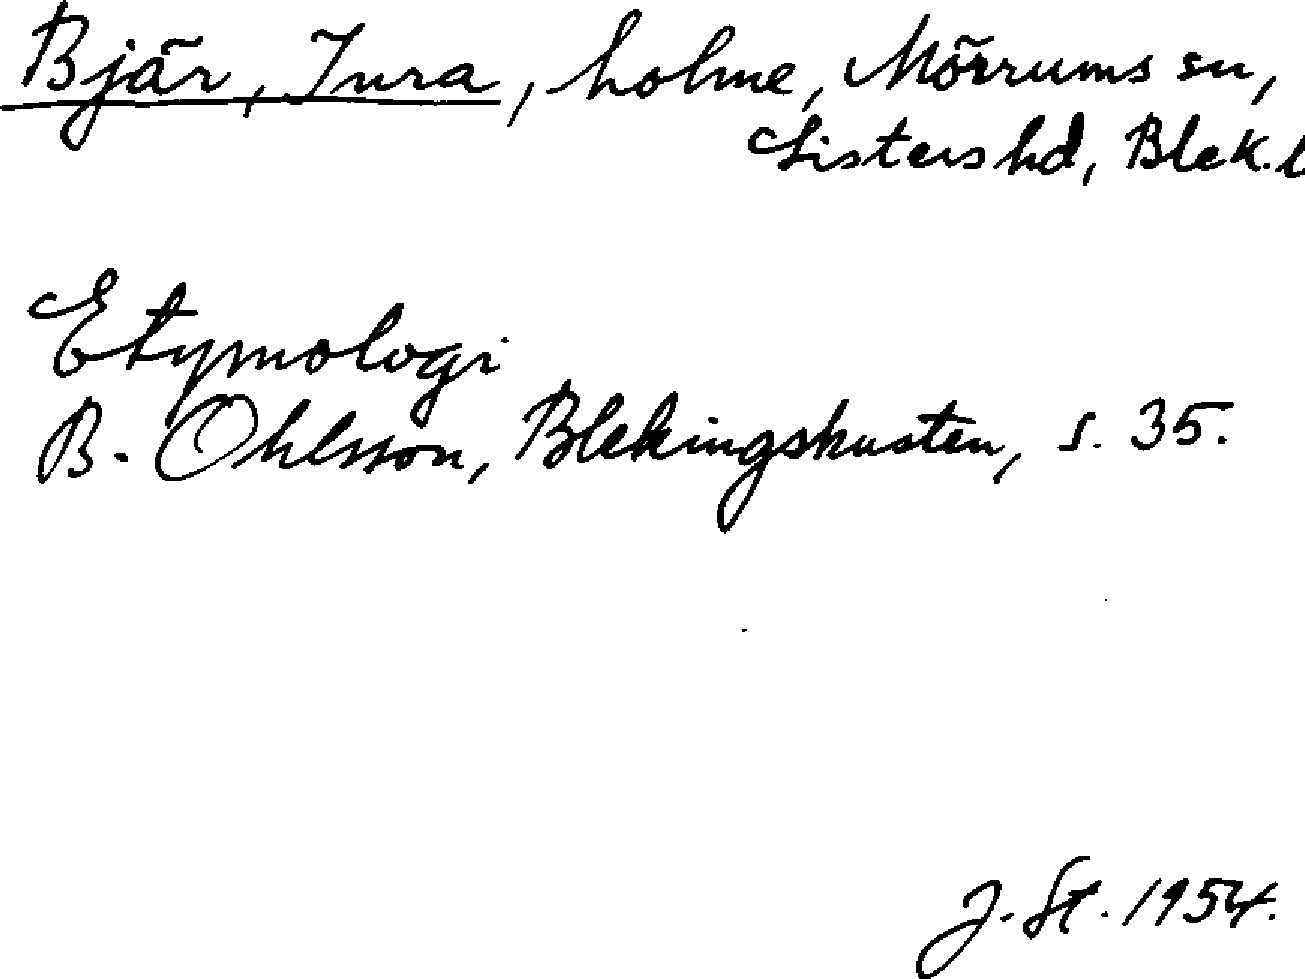 Bjär, Inra, holme, Mörrums sn,
Listers hd, Blek. l
Etymologi
B. Ohlsson, Blekingskusten, s. 35.
J. St. 1954.